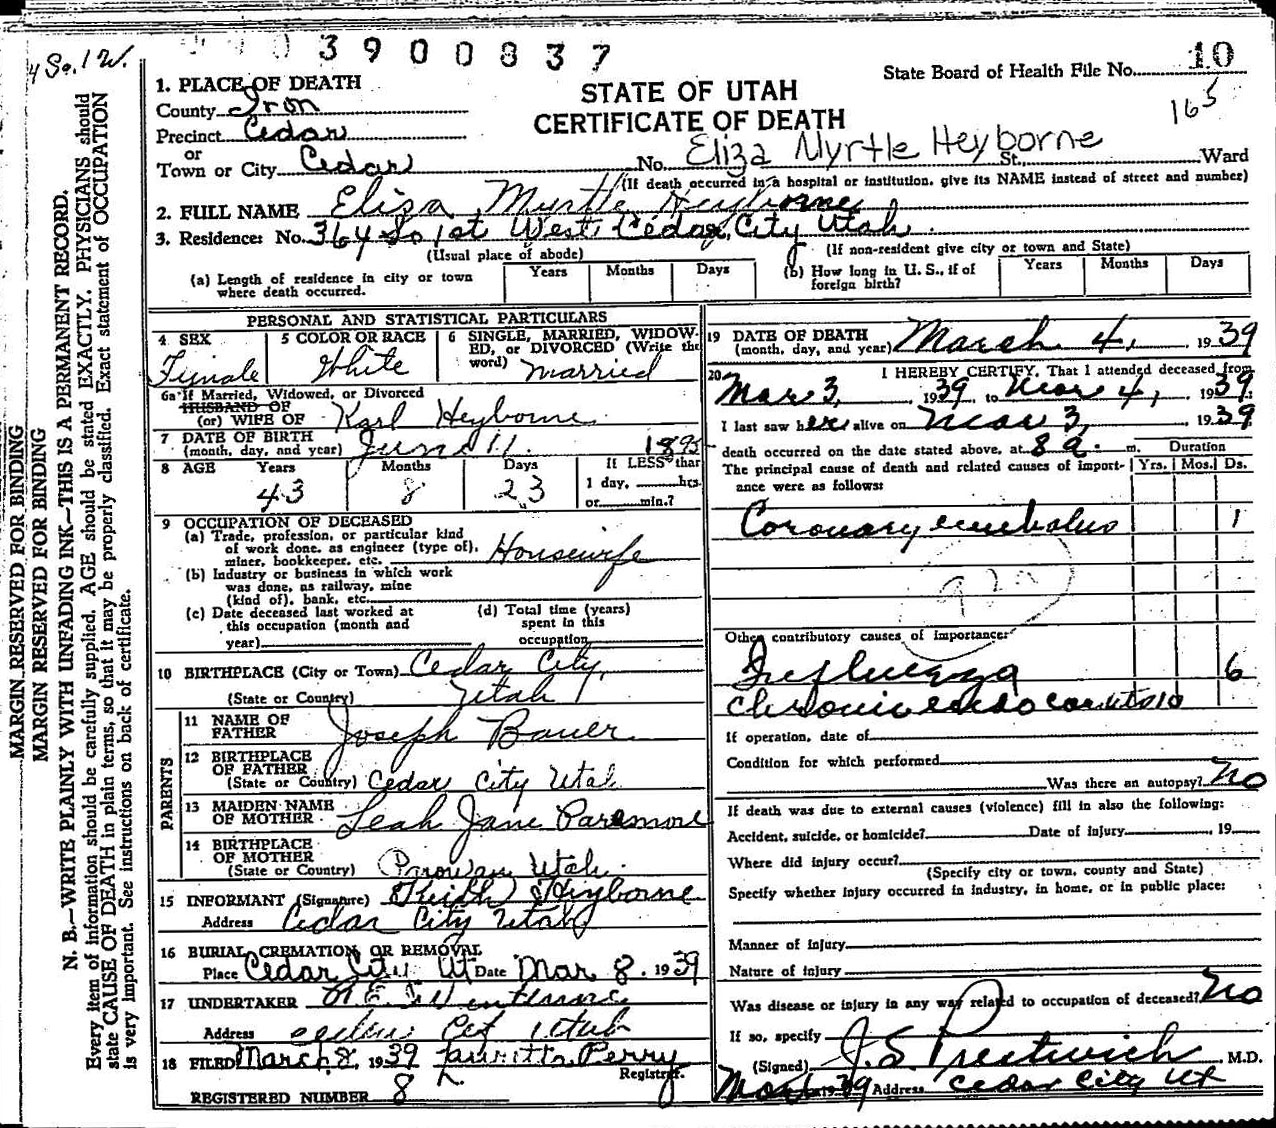 4 So. 1 W.
3900837
State Board of Health File No. 10
165
STATE OF UTAH
CERTIFICATE OF DEATH
1. PLACE OF DEATH
County Iron
Precinct Cedar
or
Town or City Cedar No. Eliza Myrtle Heyborne St., Ward
(If death occurred in a hospital or institution, give its NAME instead of street and number)
2. FULL NAME Eliza Myrtle Heyborne
3. Residence: No. 364 So 1st West Cedar City Utah.
(Usual place of abode) (If non-resident give city or town and State)
(a) Length of residence in city or town where death occurred. Years Months Days (b) How long in U. S., if of foreign birth? Years Months Days
PERSONAL AND STATISTICAL PARTICULARS
4 SEX Female
5 COLOR OR RACE White
6 SINGLE, MARRIED, WIDOWED, or DIVORCED (Write the word) Married
6a If Married, Widowed, or Divorced
HUSBAND OF
(or) WIFE OF Karl Heyborne
7 DATE OF BIRTH
(month, day, and year) June 11. 1895
8 AGE Years 43 Months 8 Days 23 If LESS than 1 day, hrs. or min.?
9 OCCUPATION OF DECEASED
(a) Trade, profession, or particular kind
of work done, as engineer (type of),
miner, bookkeeper, etc. Housewife
(b) Industry or business in which work
was done, as railway, mine
(kind of), bank, etc.
(c) Date deceased last worked at
this occupation (month and
year)
(d) Total time (years)
spent in this
occupation
10 BIRTHPLACE (City or Town) Cedar City,
(State or Country) Utah
PARENTS
11 NAME OF FATHER Joseph Bauer
12 BIRTHPLACE OF FATHER
(State or Country) Cedar City Utah
13 MAIDEN NAME OF MOTHER Leah Jane Paramore
14 BIRTHPLACE OF MOTHER
(State or Country) Parowan Utah.
15 INFORMANT (Signature) Keith Heyborne
Address Cedar City Utah
16 BURIAL, CREMATION, OR REMOVAL
Place Cedar City Ut Date Mar 8. 1939
17 UNDERTAKER
Address Utah
18 FILED March 8, 1939 Perry
Registrar.
REGISTERED NUMBER 8
19 DATE OF DEATH
(month, day, and year) March 4, 1939
20 I HEREBY CERTIFY, That I attended deceased from
Mar 3, 1939 to Mar 4, 1939.
I last saw her alive on Mar 3, 1939
death occurred on the date stated above, at 8 a. m. Duration
The principal cause of death and related causes of importance were as follows: Yrs. Mos. Ds.
Coronary embolus 1
Other contributory causes of importance:
Influenza 6
Chronic endocarditis 10
If operation, date of
Condition for which performed
Was there an autopsy? No
If death was due to external causes (violence) fill in also the following:
Accident, suicide, or homicide? Date of injury 19
Where did injury occur?
(Specify city or town, county and State)
Specify whether injury occurred in industry, in home, or in public place:
Manner of injury
Nature of injury
Was disease or injury in any way related to occupation of deceased? No
If so, specify
(Signed) J. S. Prestwich, M.D.
1939 Address Cedar City Ut
MARGIN RESERVED FOR BINDING
MARGIN RESERVED FOR BINDING
N. B.—WRITE PLAINLY WITH UNFADING INK—THIS IS A PERMANENT RECORD.
Every item of information should be carefully supplied. AGE should be stated EXACTLY. PHYSICIANS should
state CAUSE OF DEATH in plain terms, so that it may be properly classified. Exact statement of OCCUPATION
is very important. See instructions on back of certificate.